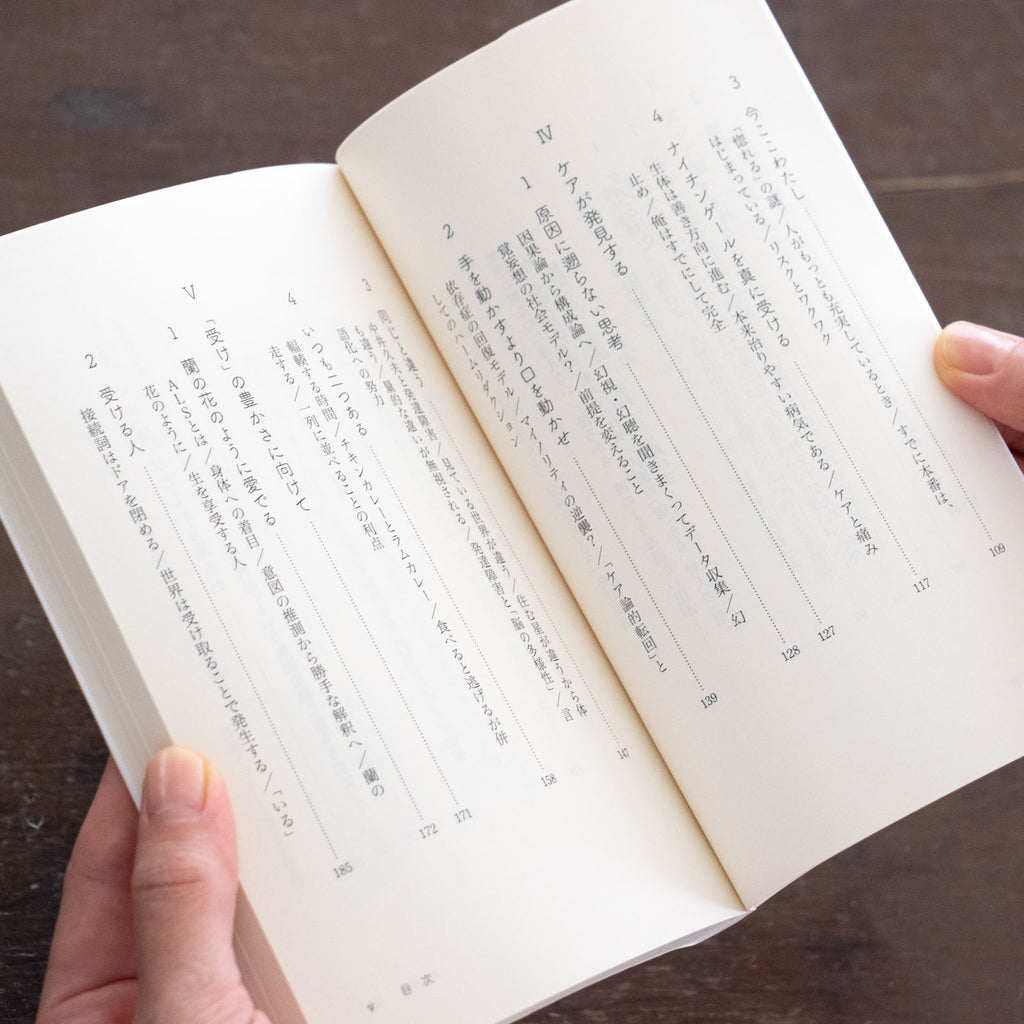 3 今ここわたし 109
「惚れる」の謎/人がもっとも充実しているとき/すでに本番は、
はじまっている/リスクとワクワク
4 ナイチンゲールを真に受ける 117
生体は善き方向に進む/本来治りやすい病気である/ケアと痛み
止め/俺はすでにして完全
Ⅳ ケアが発見する 127
1 原因に遡らない思考 128
因果論から構成論へ/幻視・幻聴を聞きまくってデータ収集/幻
覚妄想の社会モデル?/前提を変えること
2 手を動かすより口を動かせ 139
依存症の回復モデル/マイノリティの逆襲?/「ケア論的転回」と
してのハームリダクション
3 同じと違う 147
中井久夫と発達障害/見ている世界が違う/住む星が違うから体
も違う/量的な違いが無視される/発達障害と「脳の多様性」/言
語化への努力
4 いつも二つある 158
輻輳する時間/チキンカレーとラムカレー/食べると逃げるが併
走する/一列に並べることの利点
Ⅴ 「受け」の豊かさに向けて 171
1 蘭の花のように愛でる 172
ALSとは/身体への着目/意図の推測から勝手な解釈へ/蘭の
花のように/生を享受する人
2 受ける人 185
接続詞はドアを閉める/世界は受け取ることで発生する/「いる」
v 目次